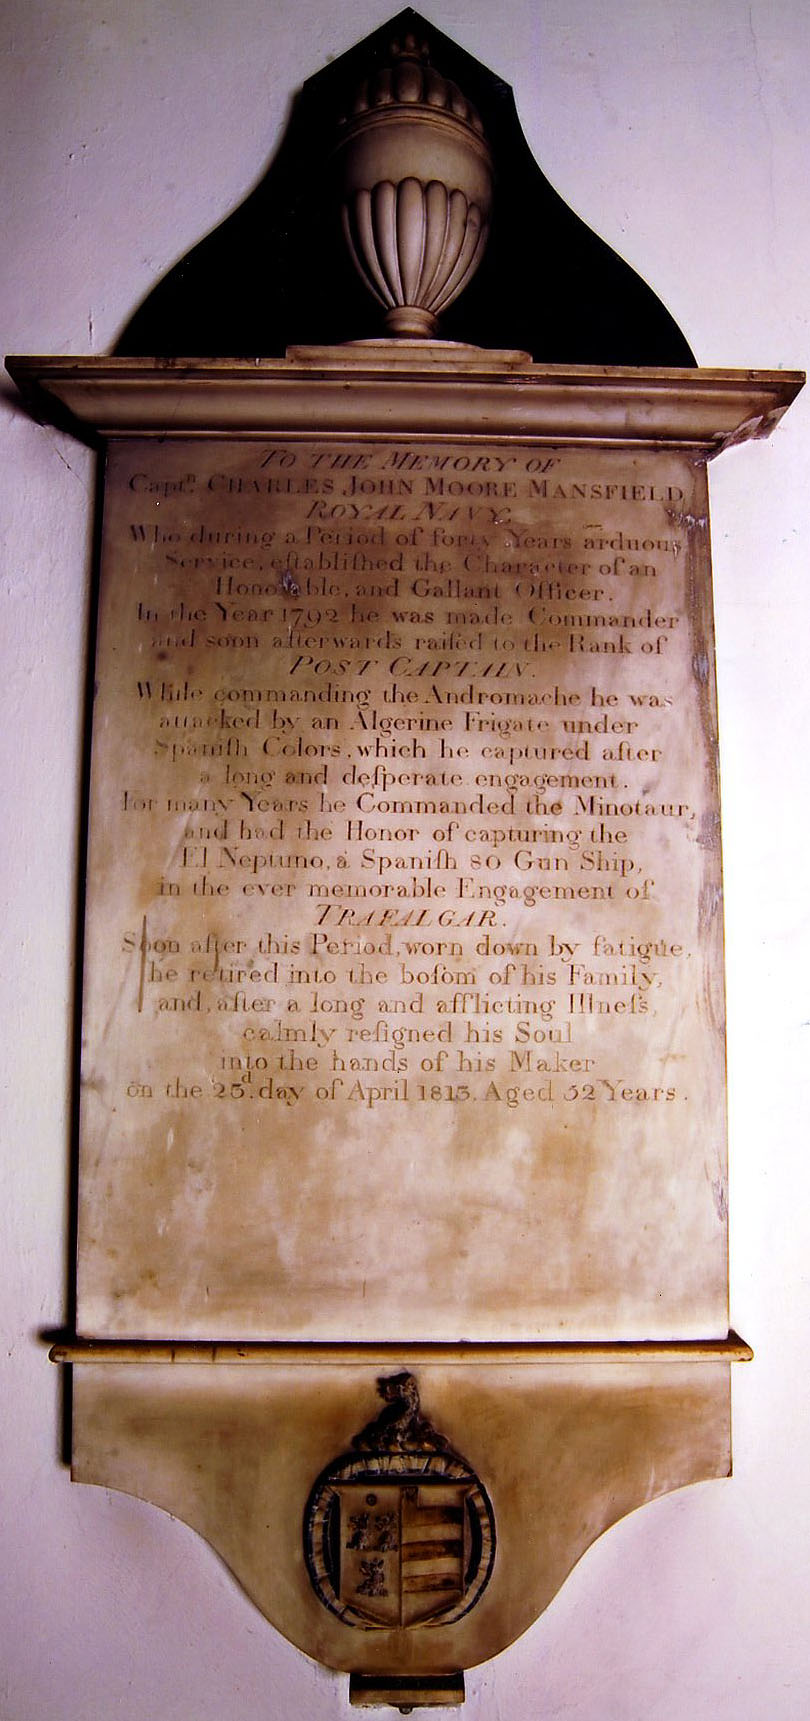 TO THE MEMORY OF
Captⁿ. CHARLES JOHN MOORE MANSFIELD,
ROYAL NAVY,
Who during a Period of forty Years arduous
Service, eſtabliſhed the Character of an
Honorable, and Gallant Officer.
In the Year 1792 he was made Commander
and soon afterwards raiſed to the Rank of
POST CAPTAIN.
While commanding the Andromache he was
attacked by an Algerine Frigate under
Spaniſh Colors, which he captured after
a long and deſperate engagement.
For many Years he Commanded the Minotaur,
and had the Honor of capturing the
El Neptuno, a Spaniſh 80 Gun Ship,
in the ever memorable Engagement of
TRAFALGAR.
Soon after this Period, worn down by fatigue,
he retired into the boſom of his Family,
and, after a long and afflicting Illneſs,
calmly reſigned his Soul
into the hands of his Maker
on the 23ᵈ. day of April 1813. Aged 52 Years.